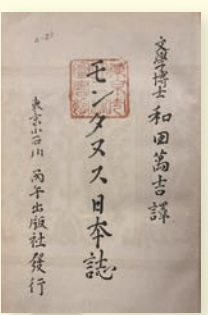 文學博士 和田萬吉譯
モンタヌス日本誌
東京小石川 丙午出版社發行